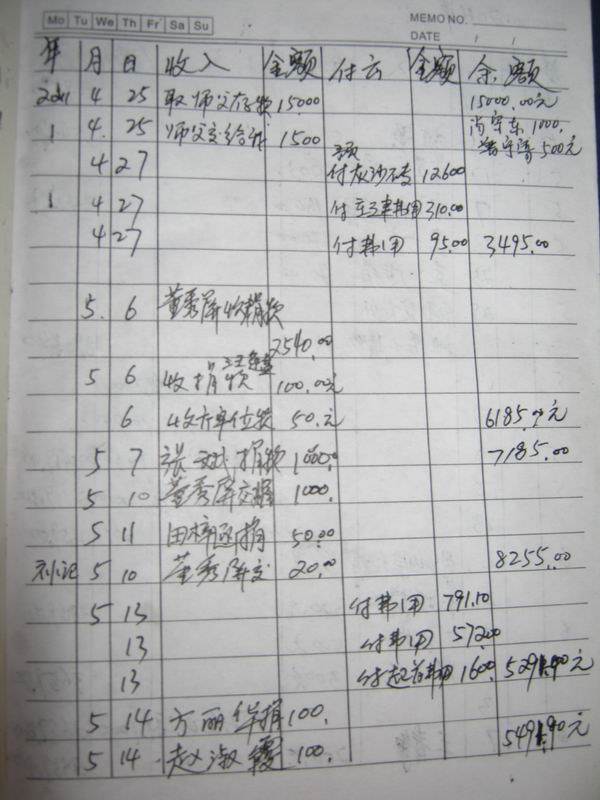 Mo Tu We Th Fr Sa Su MEMO NO.
DATE / /
年 月 日 收入 金额 付云 金额 余额
2011 4 25 取师父存款 15000 15000.00元
1 4. 25 师父交给我 1500 1000.
500元
4 27 付灰沙石 12600
1 4 27 付 费用 310.00
4 27 付费用 95.00 3495.00
5. 6 董秀屏收捐款
2540.00
5 6 收捐款 100.00元
6 收六单位款 50.元 6185.元
5 7 张斌捐款 1000.00 7185.00
5 10 董秀屏交 1000.
5 11 田梓函捐 50.00
补记 5 10 董秀屏交 20.00 8255.00
5 13 付费用 791.10
13 付费用 572.00
13 付 费用 1600. 5291.90元
5 14 方丽华捐 100.
5 14 赵淑霞 100. 5491.90元